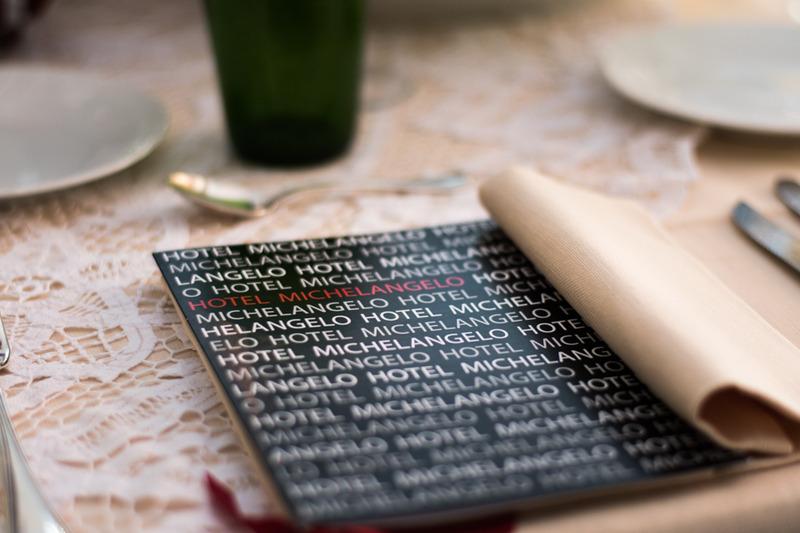 HOTEL MICHELANGELO HOTEL
MICHELANGELO HOTEL MICHELANGELO
LANGELO HOTEL MICHELANGELO
O HOTEL MICHELANGELO HOTEL
HOTEL MICHELANGELO HOTEL
MICHELANGELO HOTEL
HELANGELO HOTEL MICHELANGELO
ELO HOTEL MICHELANGELO HOTE
HOTEL MICHELANGELO HOTEL
MICHELANGELO HOTEL MICHELANG
LANGELO HOTEL MICHELANGELO
O HOTEL MICHELANGELO HOTE
HOTEL MICHELANGELO HOTEL
MICHELANGELO HOTEL MICHELANGE
ANGELO HOTEL MICHELANGELO
HOTEL MICHELANGELO HOTEL
HOTEL MICHELANGELO HOTEL
MICHELANGELO HOTEL MICHELANGELO